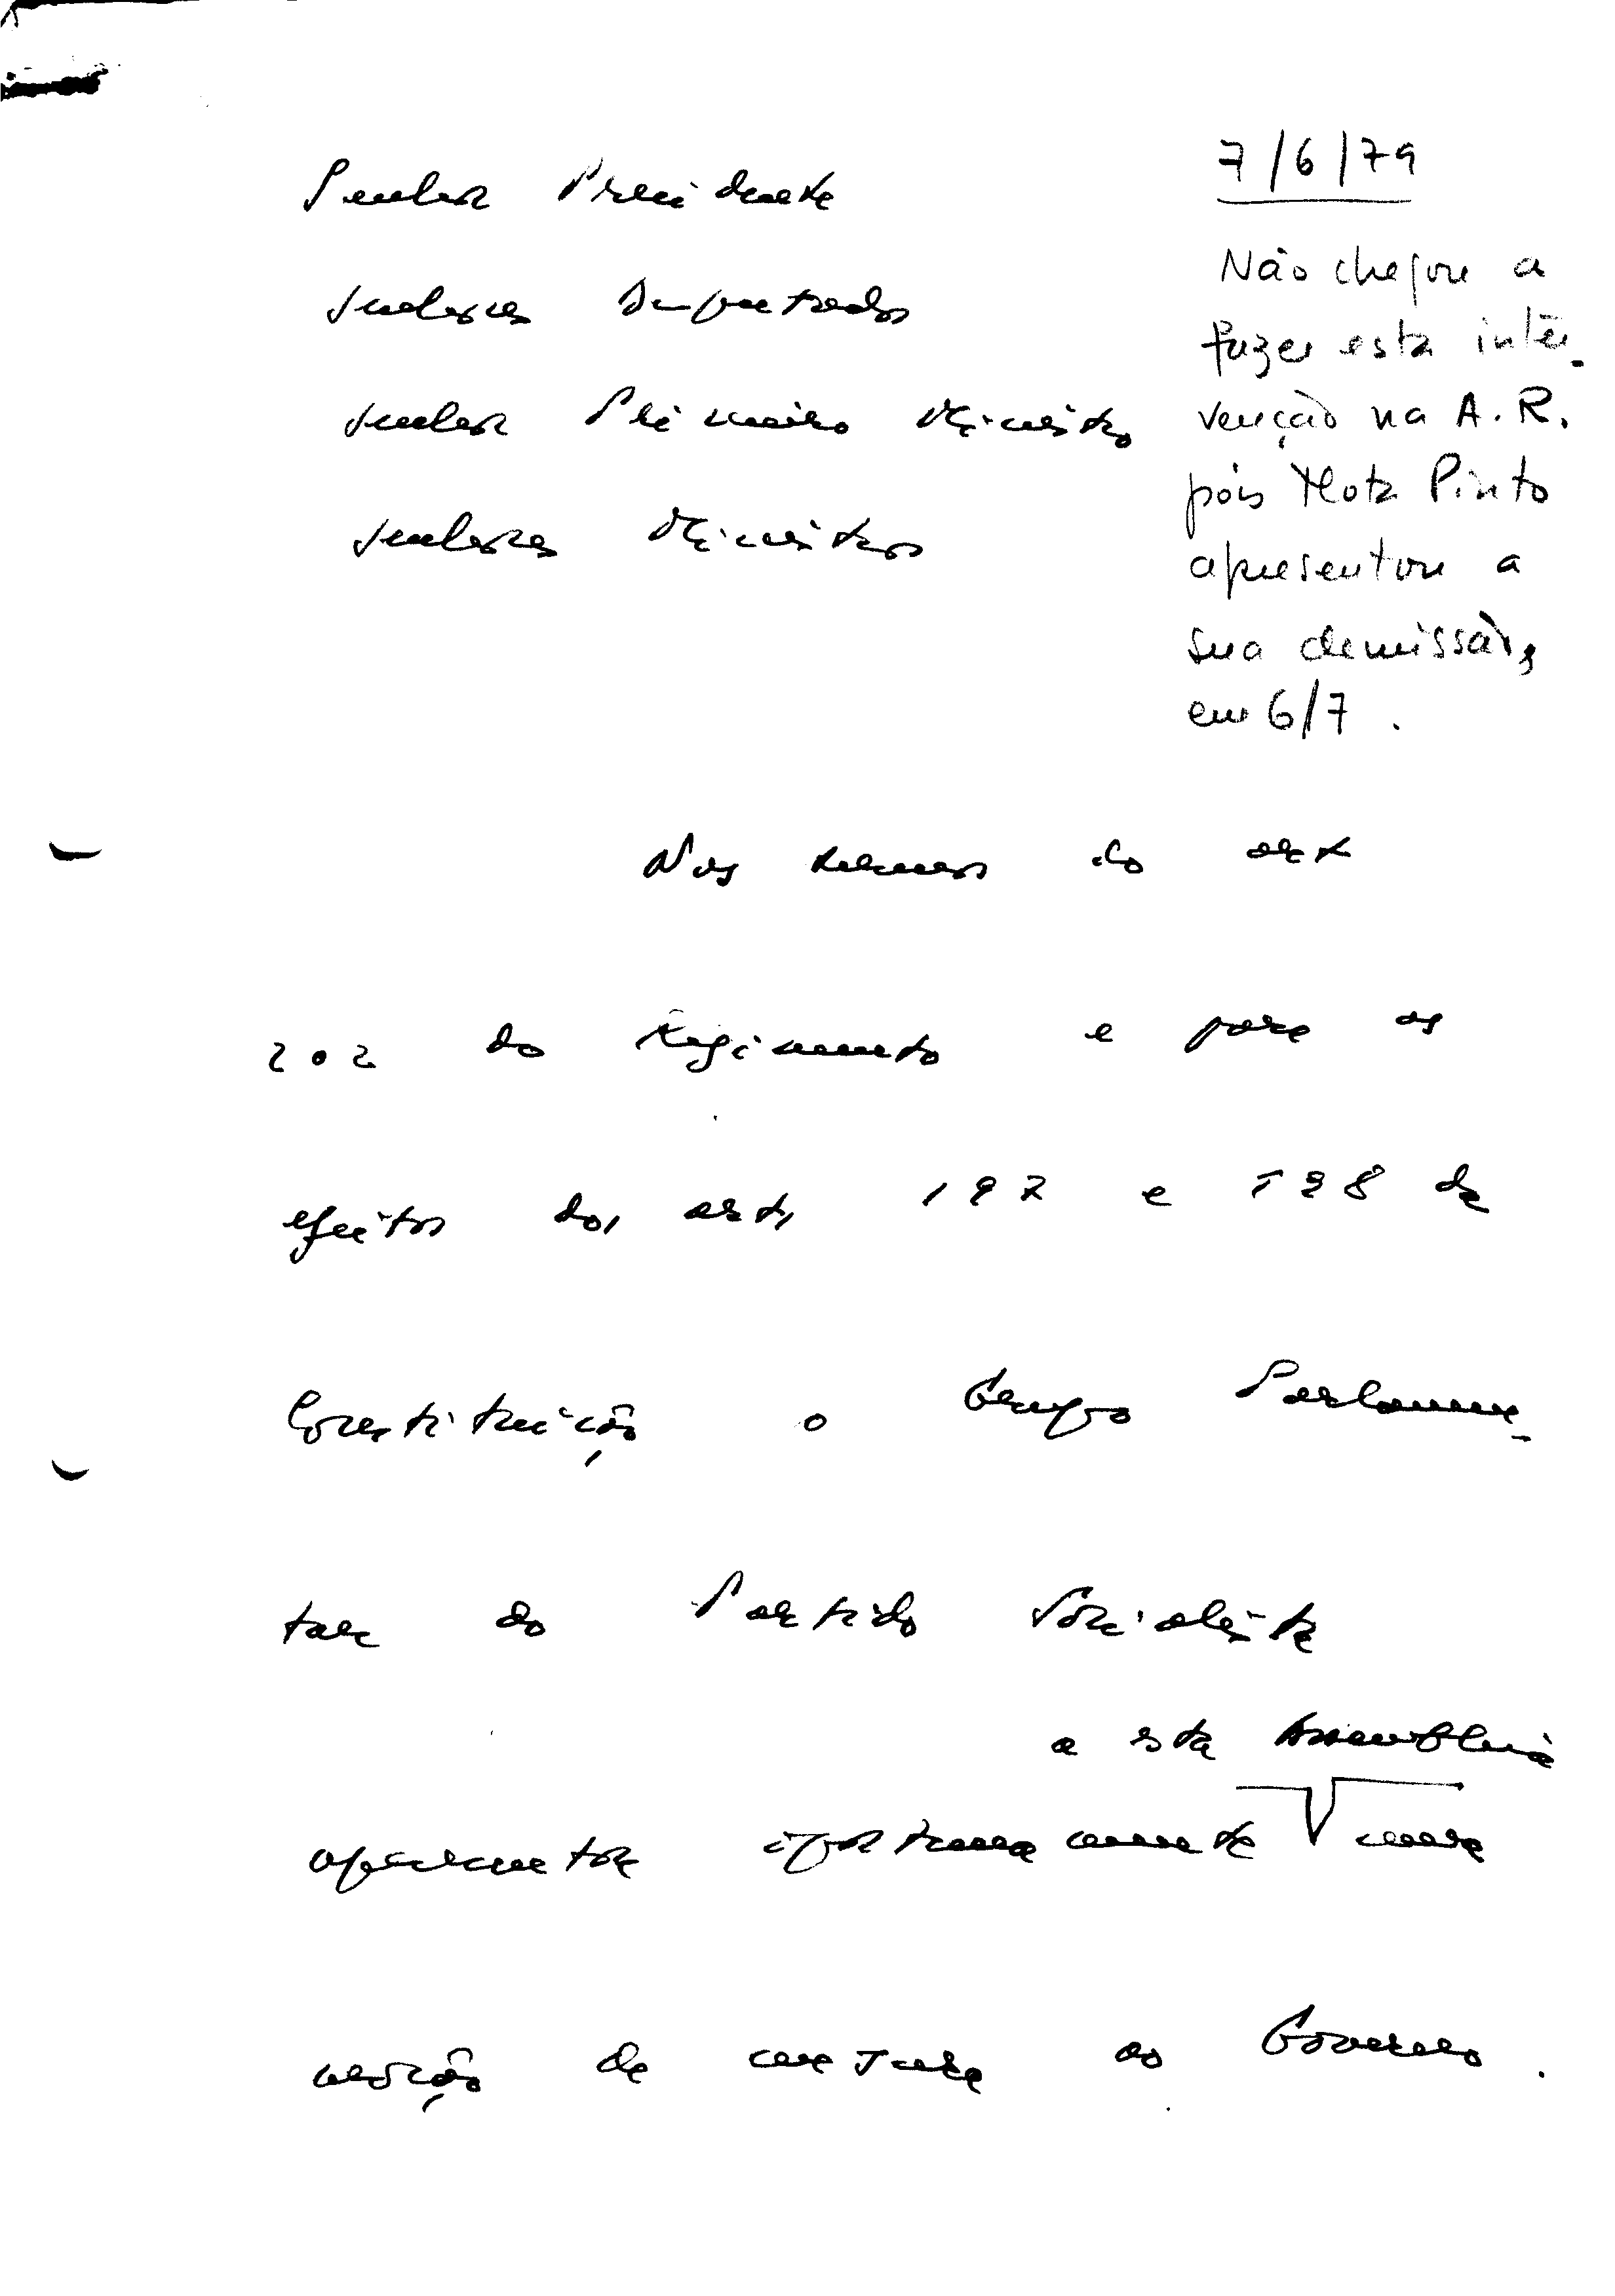 7/6/79
Senhor Presidente
Senhores Deputados
Senhor Primeiro Ministro
Senhores Ministros
Não chegou a
fazer esta inter-
venção na A.R.
pois Mota Pinto
apresentou a
sua demissão,
em 6/7.
Nos termos do art
202 do Regimento e para os
efeitos dos arts 197 e 198 da
Constituição o Grupo Parlamen-
tar do Partido Socialista
a esta Assembleia
apresentou uma
moção de censura ao Governo.